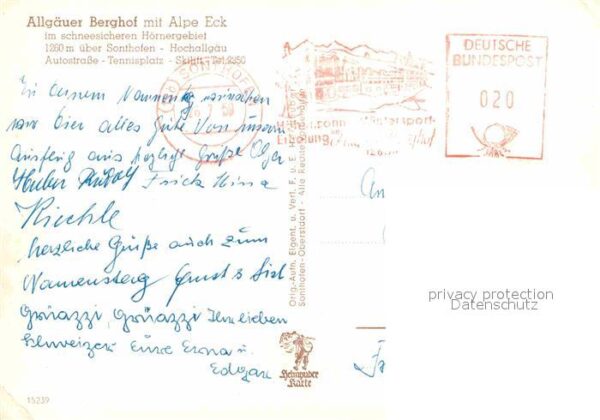 Allgäuer Berghof mit Alpe Eck
im schneesicheren Hörnergebiet
1260 m über Sonthofen - Hochallgäu
Autostraße - Tennisplatz - Skilift - Tel. 2350
SONTHOFEN
DEUTSCHE
BUNDESPOST
020
Wintersport
Erholung im
Zu eurem Namenstag wünschen
wir hier alles Gute Von unserm
Ausflug aus herzliche Grüße Olga
Huber Rudolf Frick Nina
Kiechle
herzliche Grüße auch zum
Namenstag Ernst &
Grüazzi, Grüazzi Ihr lieben
Schweizer Eure Erna u.
Edgar
Orig.-Aufn. Eigent. u. Verl. F. u. E.
Sonthofen-Oberstdorf - Alle Rechte
An
Heimhuder
Karte
15239
privacy protection
Datenschutz